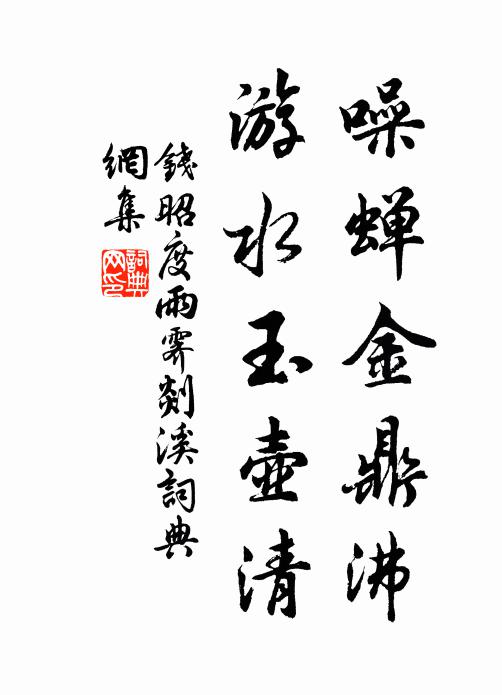 噪蝉金鼎沸
游水玉壶清
錢昭度雨霁剡溪詞典
網集
詞典
网印